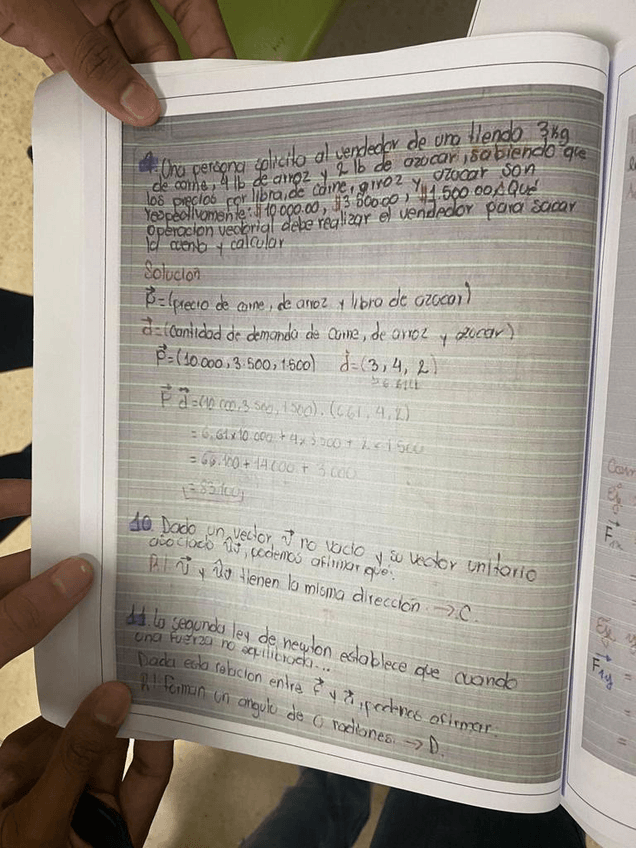 9. Una persona solicito al vendedor de una tienda 3kg
de carne, 4 lb de arroz y 2 lb de azocar, sabiendo que
los precios por libra, de carne, arroz y azocar son
respectivamente: $10.000.00, $3.500.00, $1.500.00 ¿Que
operación vectorial debe realizar el vendedor para sacar
la cuenta y calcular
Solución
p⃗=(precio de carne, de arroz y libra de azocar)
d⃗=(cantidad de demanda de carne, de arroz y azocar)
p⃗=(10.000, 3.500, 1.500) d⃗=(3, 4, 2)
p⃗ d⃗=(10.000, 3.500, 1.500).(6.61, 4, 2)
= 6,61x10.000 + 4x3.500 + 2x1.500
= 66.100 + 14.000 + 3.000
= 83.100
10. Dado un vector v⃗ no vacio y su vector unitario
asociado ûv, podemos afirmar que:
R/ v⃗ y ûv tienen la misma dirección. → C.
11. La segunda ley de newton establece que cuando
una fuerza no equilibrada...
Dada esta relacion entre f⃗ y a⃗, podemos afirmar.
R/ Forman un angulo de 0 radianes. → D.
Ej
F⃗
Eje y
F⃗1y =
=
=